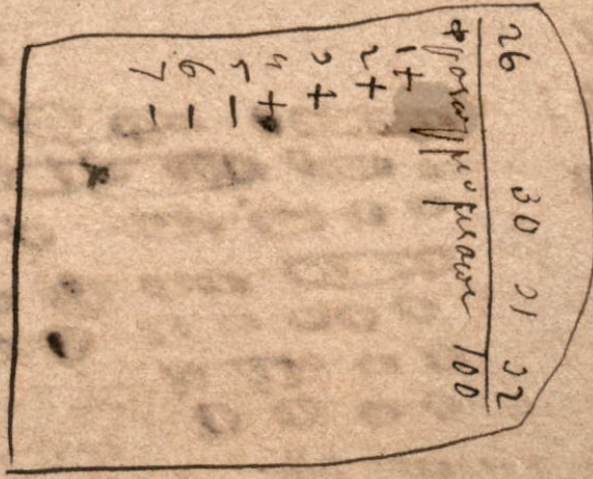 26 30 31 32
100
1 +
2 +
3 +
4 +
5 -
6 -
7 -